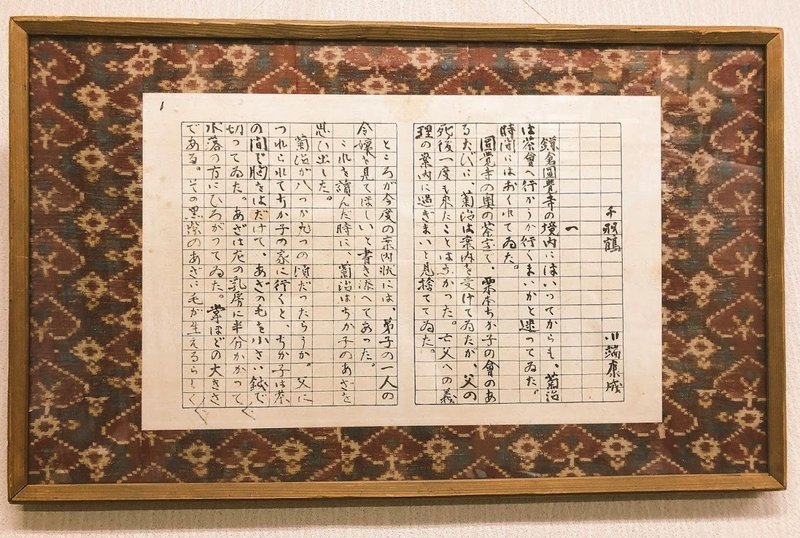 千羽鶴
川端康成
一
鎌倉圓覺寺の境内にはいつてからも、菊治
は茶會へ行かうか行くまいかと迷つてゐた。
時間にはおくれてゐた。
圓覺寺の奥の茶室で、栗本ちか子の會のあ
るたびに、菊治は案内を受けてゐたが、父の
死後一度も來たことはなかつた。亡父への義
理の案内に過ぎまいと見捨ててゐた。
ところが今度の案内状には、弟子の一人の
令嬢を見てほしいと書き添へてあつた。
これを讀んだ時に、菊治はちか子のあざを
思ひ出した。
菊治が八つか九つの頃だつたらうか。父に
つれられてちか子の家に行くと、ちか子は茶
の間で胸をはだけて、あざの毛を小さい鋏で
切つてゐた。あざは左の乳房に半分かかつて、
水落の方にひろがつてゐた。掌ほどの大きさ
である。その黒紫のあざに毛が生えるらしく
1